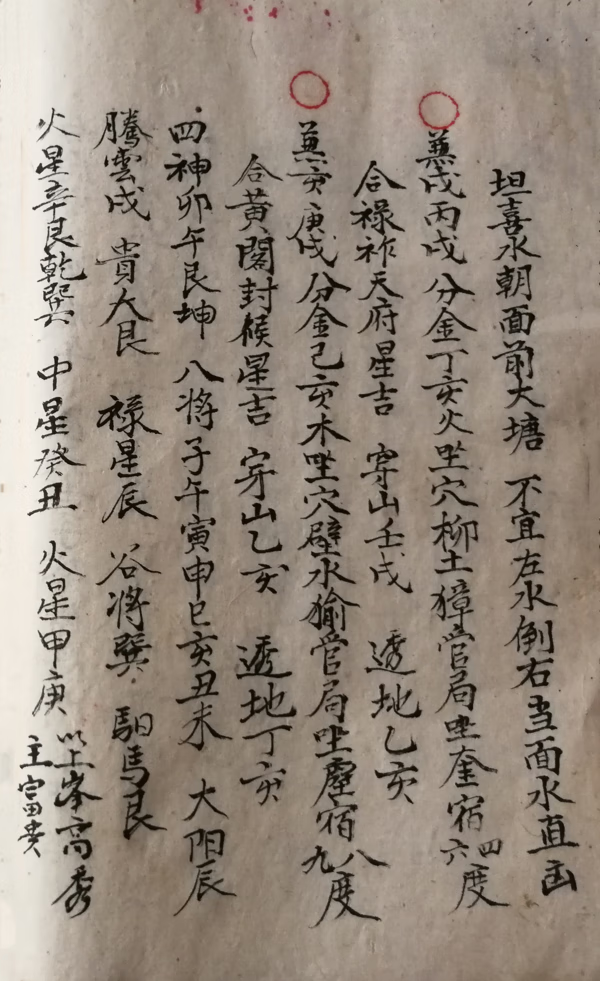 坦喜水朝面前大塘 不宜左水倒右当面水直出
兼戌丙戌分金丁亥火坐穴柳土獐管局坐奎宿四六度
合祿祚天府星吉 穿山壬戌 透地乙亥
兼亥庚戌分金己亥木坐穴壁水㺄管局坐壁宿八九度
合黃閣封候星吉 穿山乙亥 透地丁亥
四神卯午艮坤 八將子午寅申巳亥丑未 大阳辰
騰雲戌 貴人艮 祿星辰 谷将巽 馹馬艮
火星辛艮乾巽 中星癸丑 火星甲庚 以上峯高秀主富贵